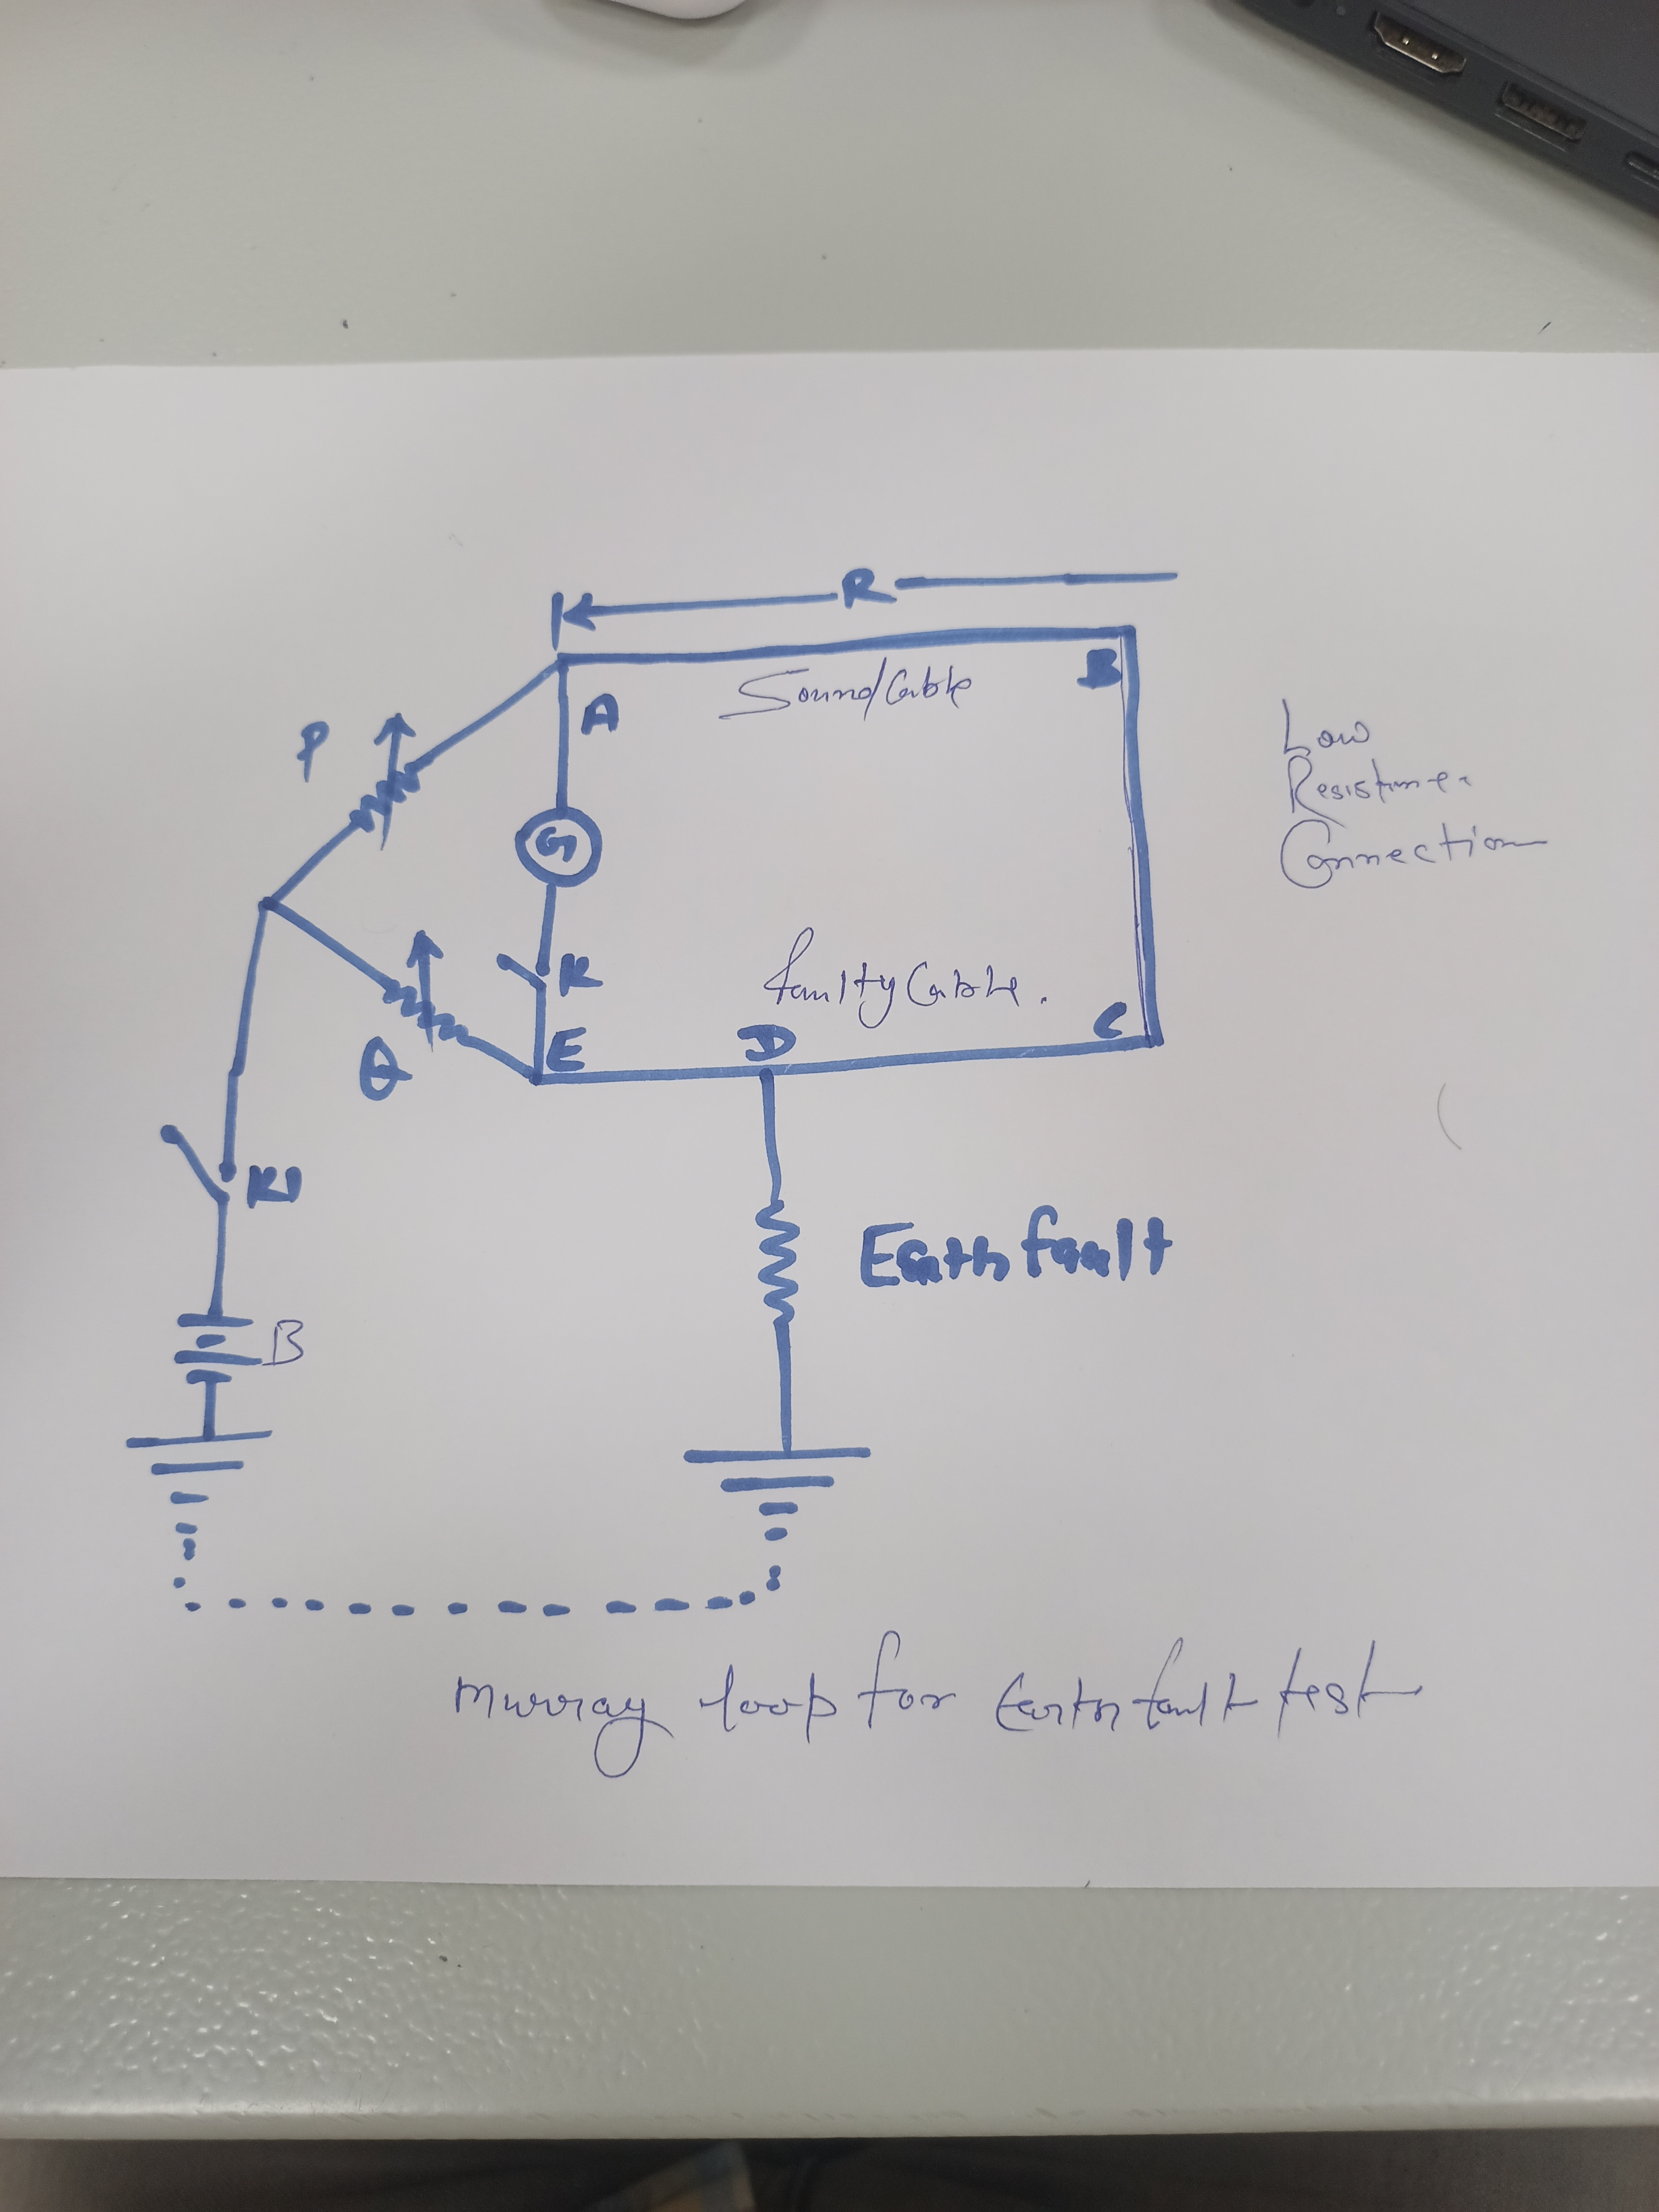 R
Sound Cable
A
B
P
G
Low
Resistance
Connection
faulty Cable.
K
E
D
C
Q
K1
Earth fault
B
Murray loop for Earth fault test